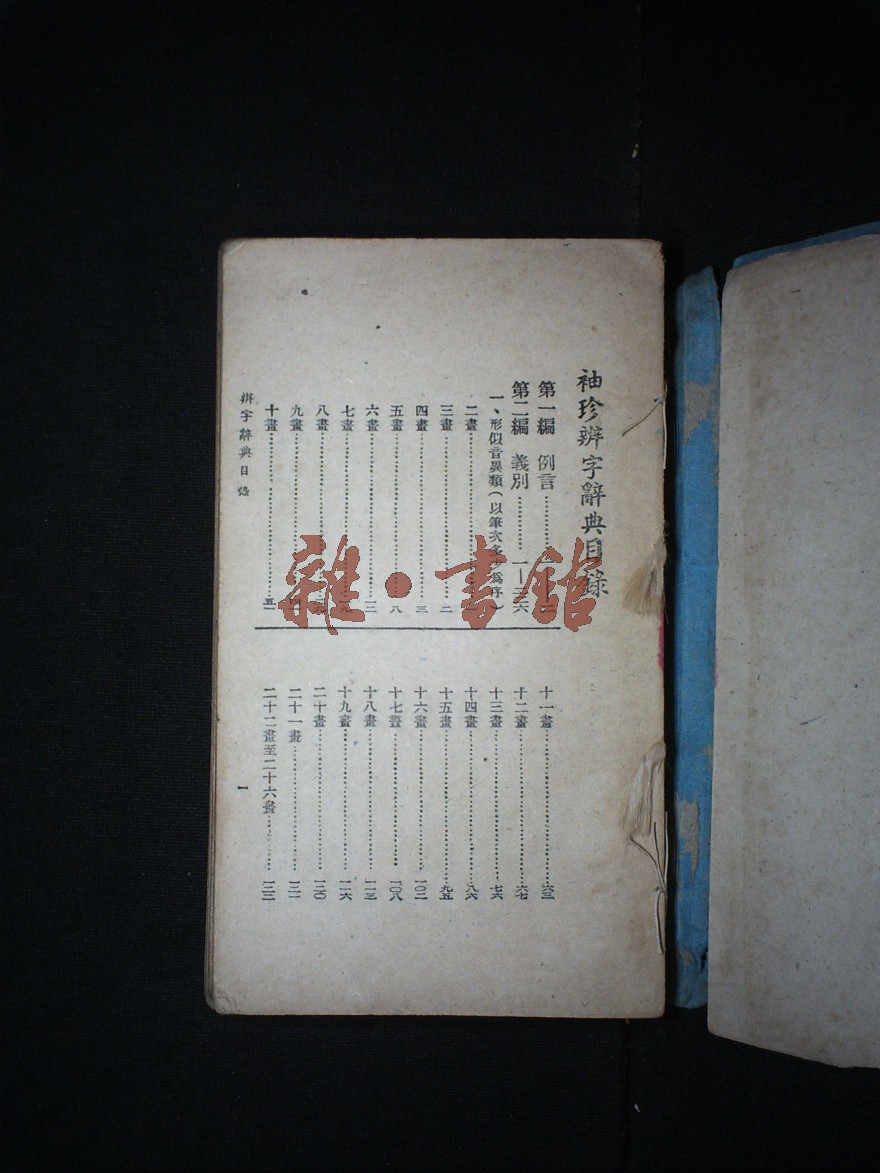 袖珍辨字辭典目錄
第一編 例言
第二編 義別……一—三六
一、形似音異類(以筆次多少爲序)
二畫
三畫……二
四畫……三
五畫……八
六畫……一二
七畫
八畫
九畫
十畫……五一
辨字辭典目錄
十一畫……六三
十二畫……六七
十三畫……七六
十四畫……八六
十五畫……九五
十六畫……一〇二
十七畫……一〇八
十八畫……一一三
十九畫……一二六
二十畫……一三〇
二十一畫……一三一
二十二畫至二十六畫……一三三
一
雜·書館